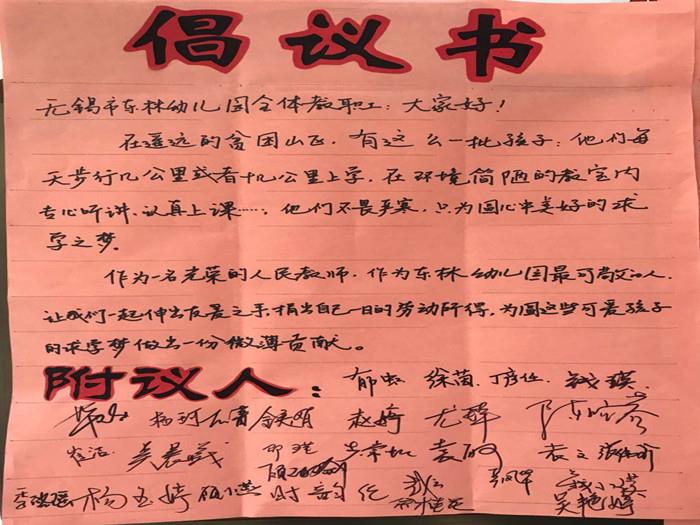 倡议书
无锡市东林幼儿园全体教职工：大家好！
在遥远的贫困山区，有这么一批孩子：他们每
天步行几公里或者十几公里上学，在环境简陋的教室内
专心听讲、认真上课……，他们不畏严寒，只为圆心中美好的求
学之梦。
作为一名光荣的人民教师，作为东林幼儿园最可敬的人，
让我们一起伸出友爱之手，捐出自己一日的劳动所得，为圆这些可爱孩子
的求学梦做出一份微薄贡献。
附议人：郁虹 徐茵、丁彦任、钱瑛
赵婷 尤
吴晨曦 袁
杨玉婷 吴艳婷